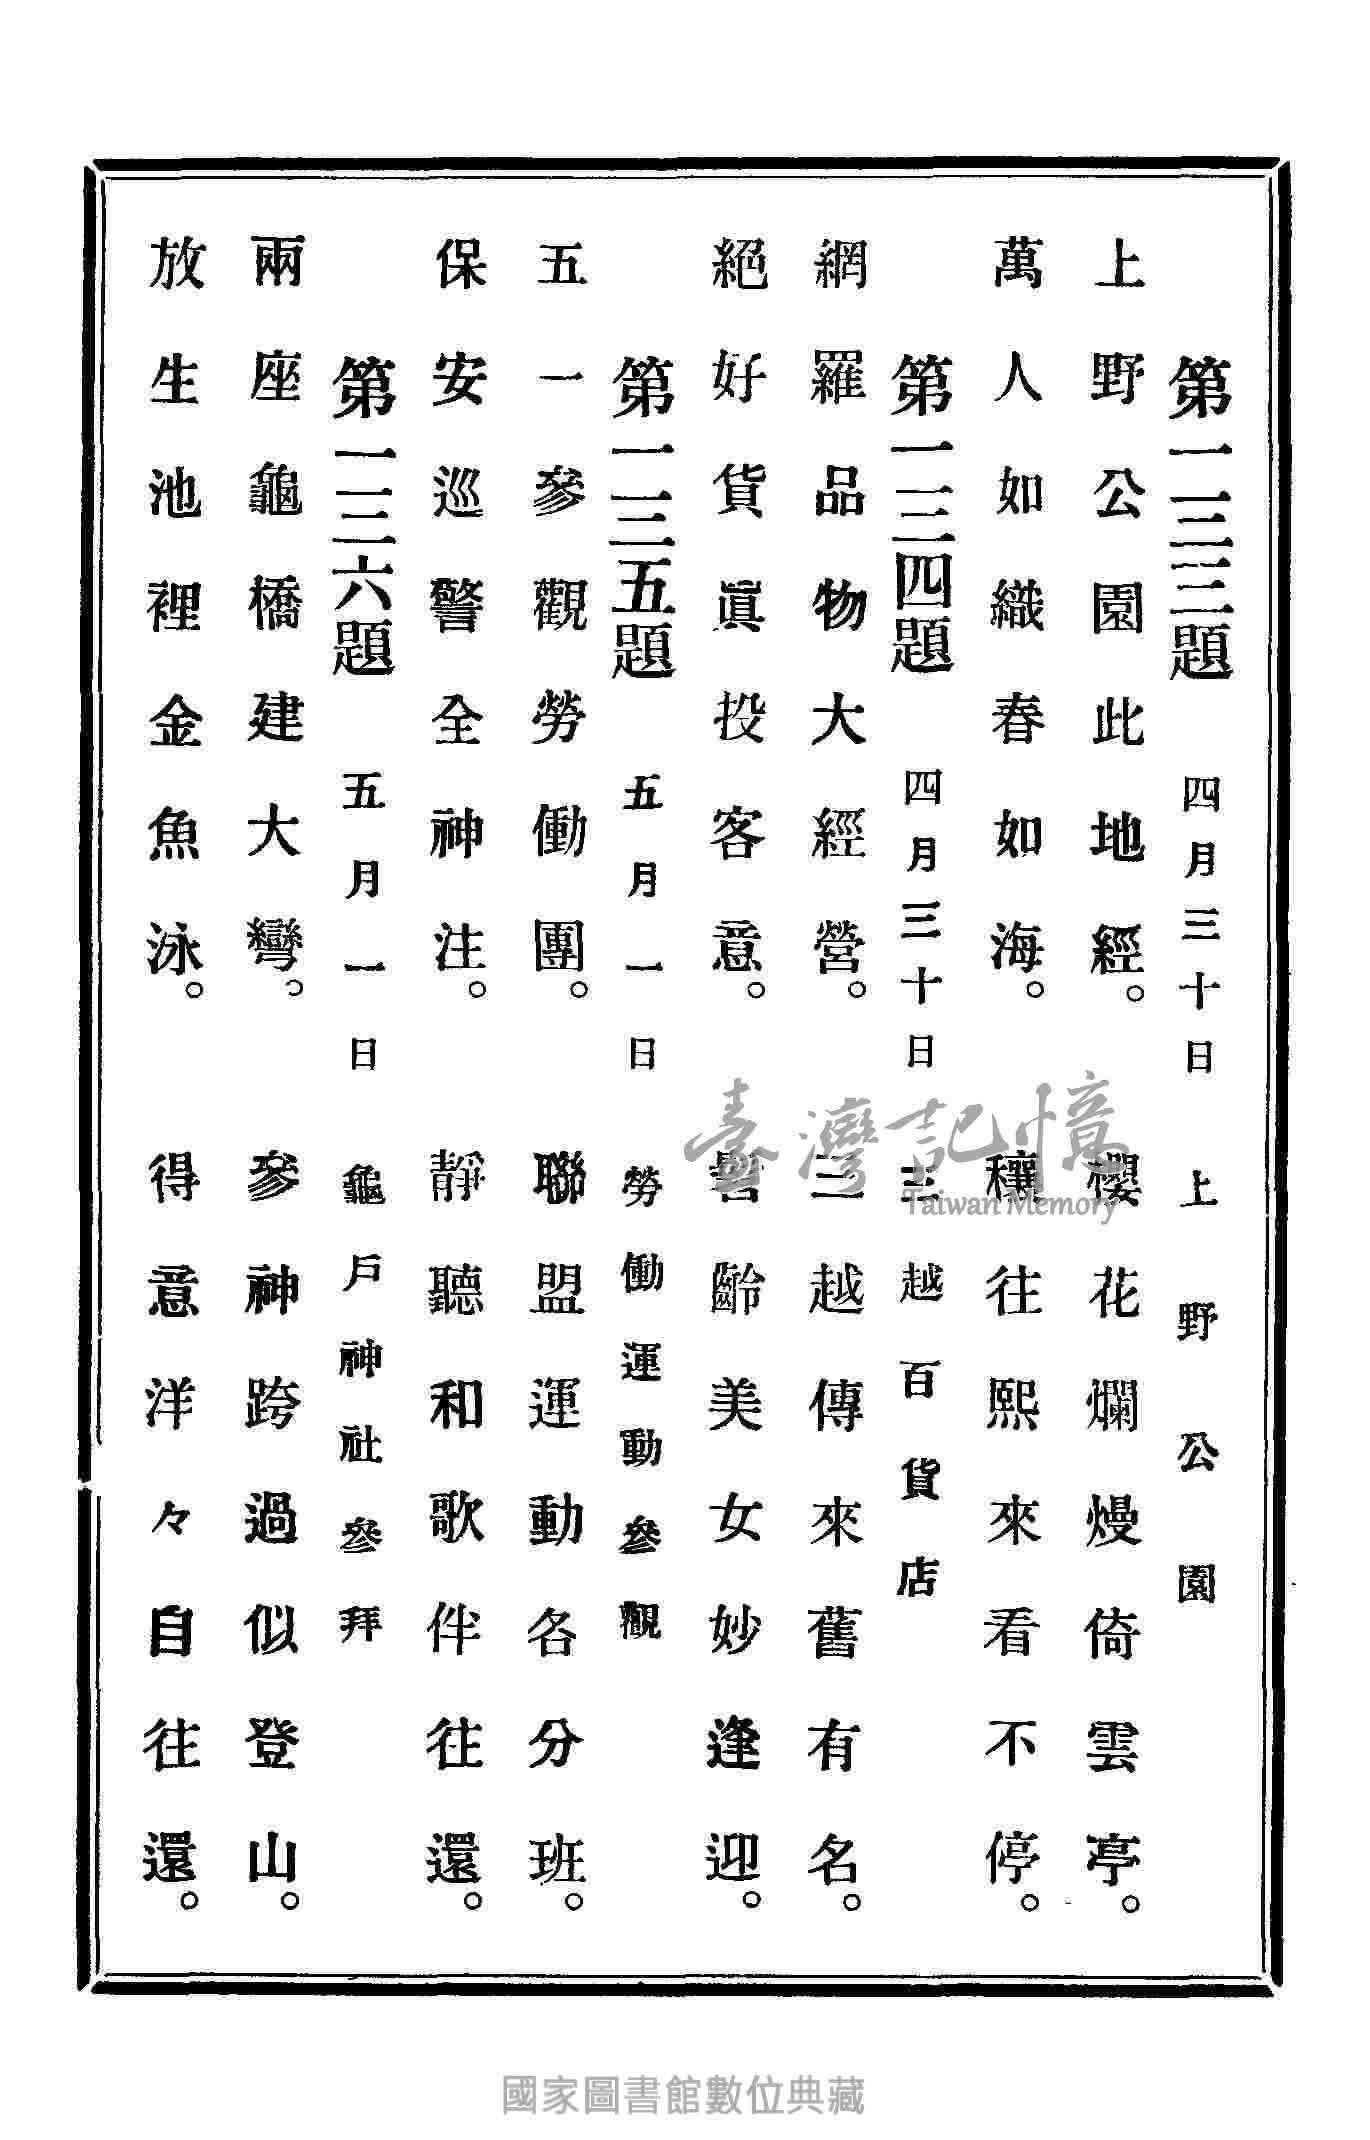 第一三三題 四月三十日 上野公園
上野公園此地經。 櫻花爛熳倚雲亭。
萬人如織春如海。 穰往熙來看不停。
第一三四題 四月三十日 三越百貨店
網羅品物大經營。 三越傳來舊有名。
絕好貨眞投客意。 髫齡美女妙逢迎。
第一三五題 五月一日 勞働運動參觀
五一參觀勞働團。 聯盟運動各分班。
保安巡警全神注。 靜聽和歌伴往還。
第一三六題 五月一日 龜戶神社參拜
兩座龜橋建大彎。 參神跨過似登山。
放生池裡金魚泳。 得意洋々自往還。
臺灣記憶
Taiwan Memory
國家圖書館數位典藏